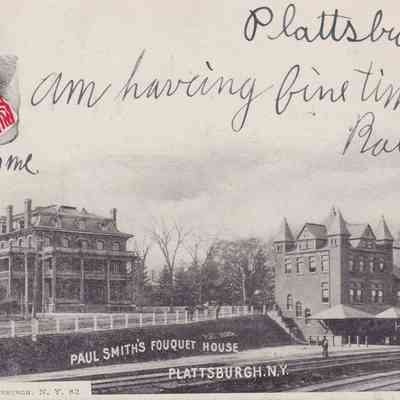 Plattsbu
am having fine tim
Ra
me
PAUL SMITH'S FOUQUET HOUSE
PLATTSBURGH. N.Y.
N. Y. 82